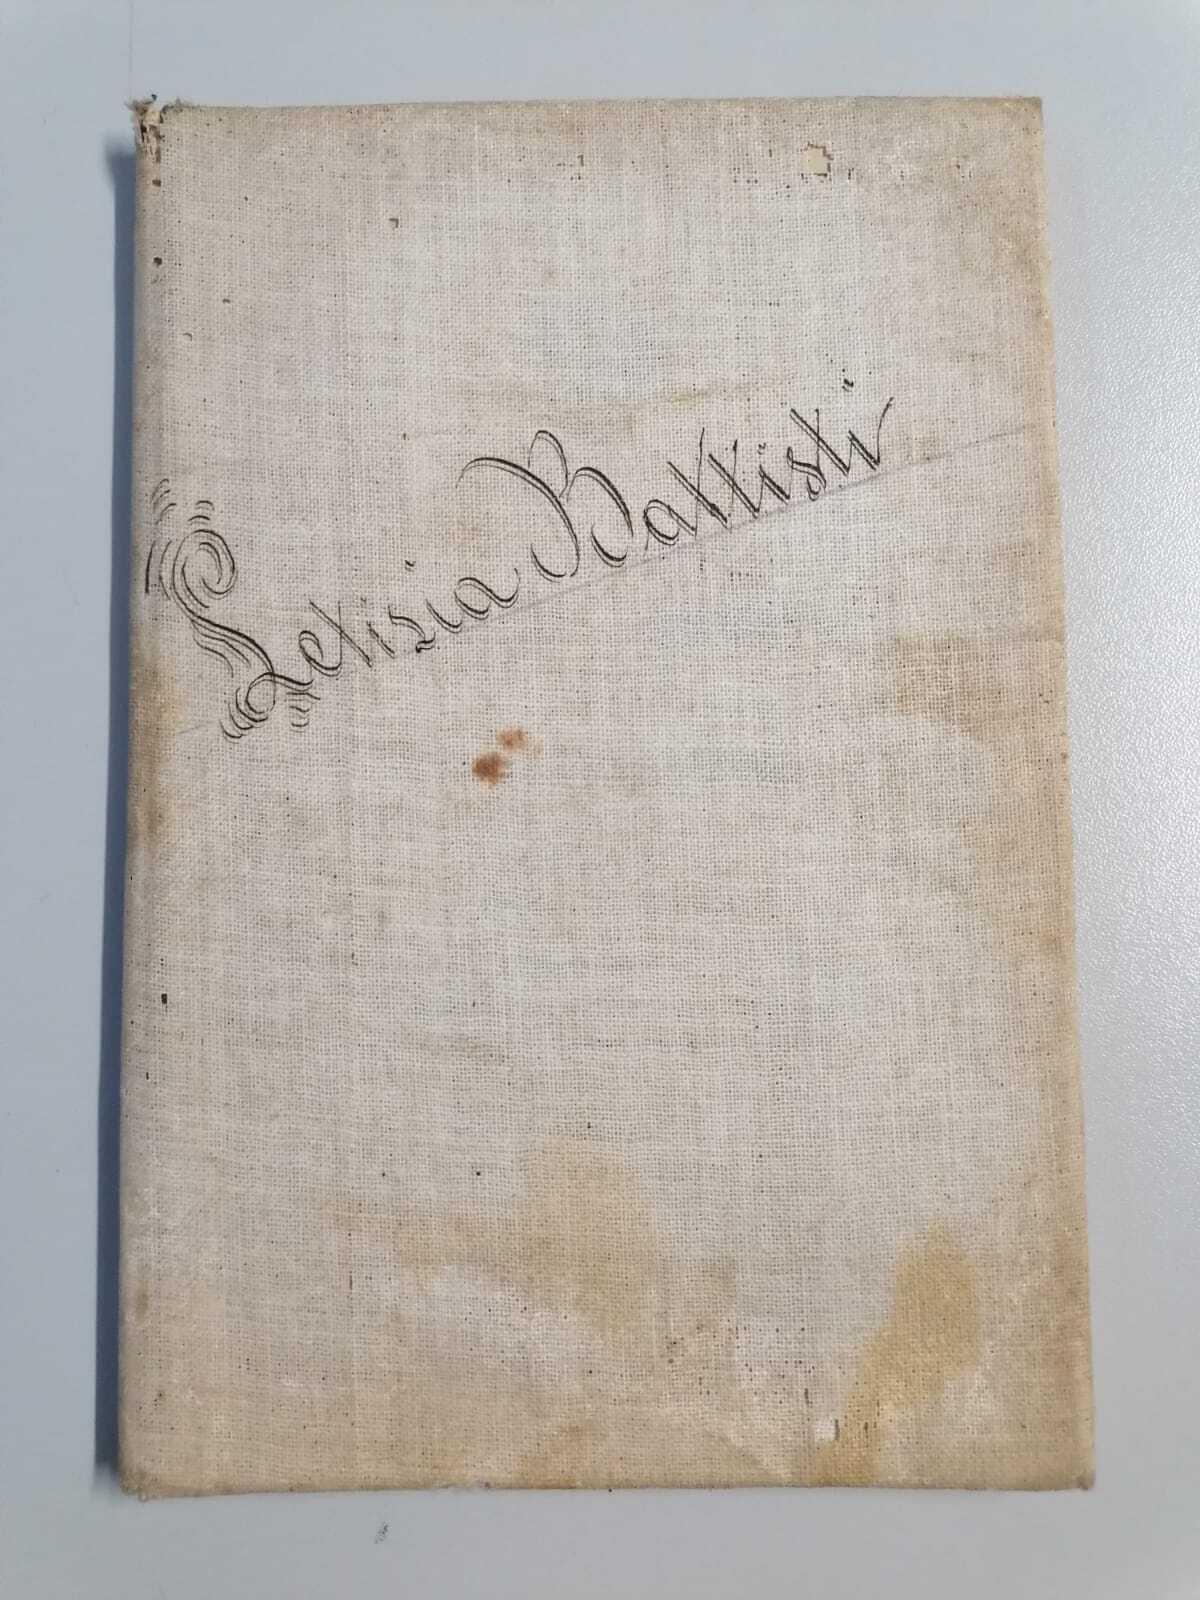 Letizia Battisti